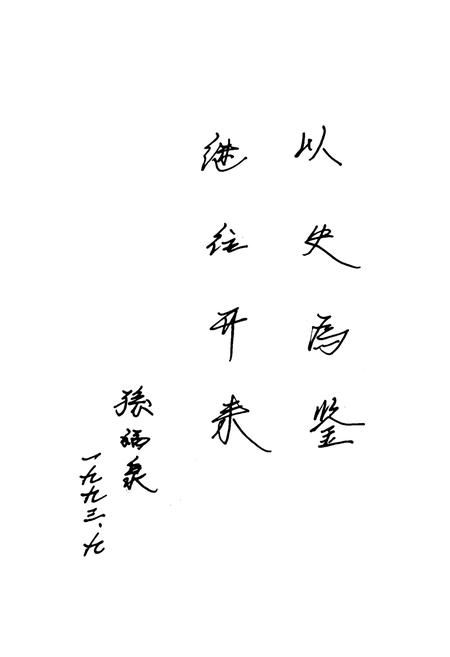 以史为鉴
继往开来
张福泉
一九九三.九